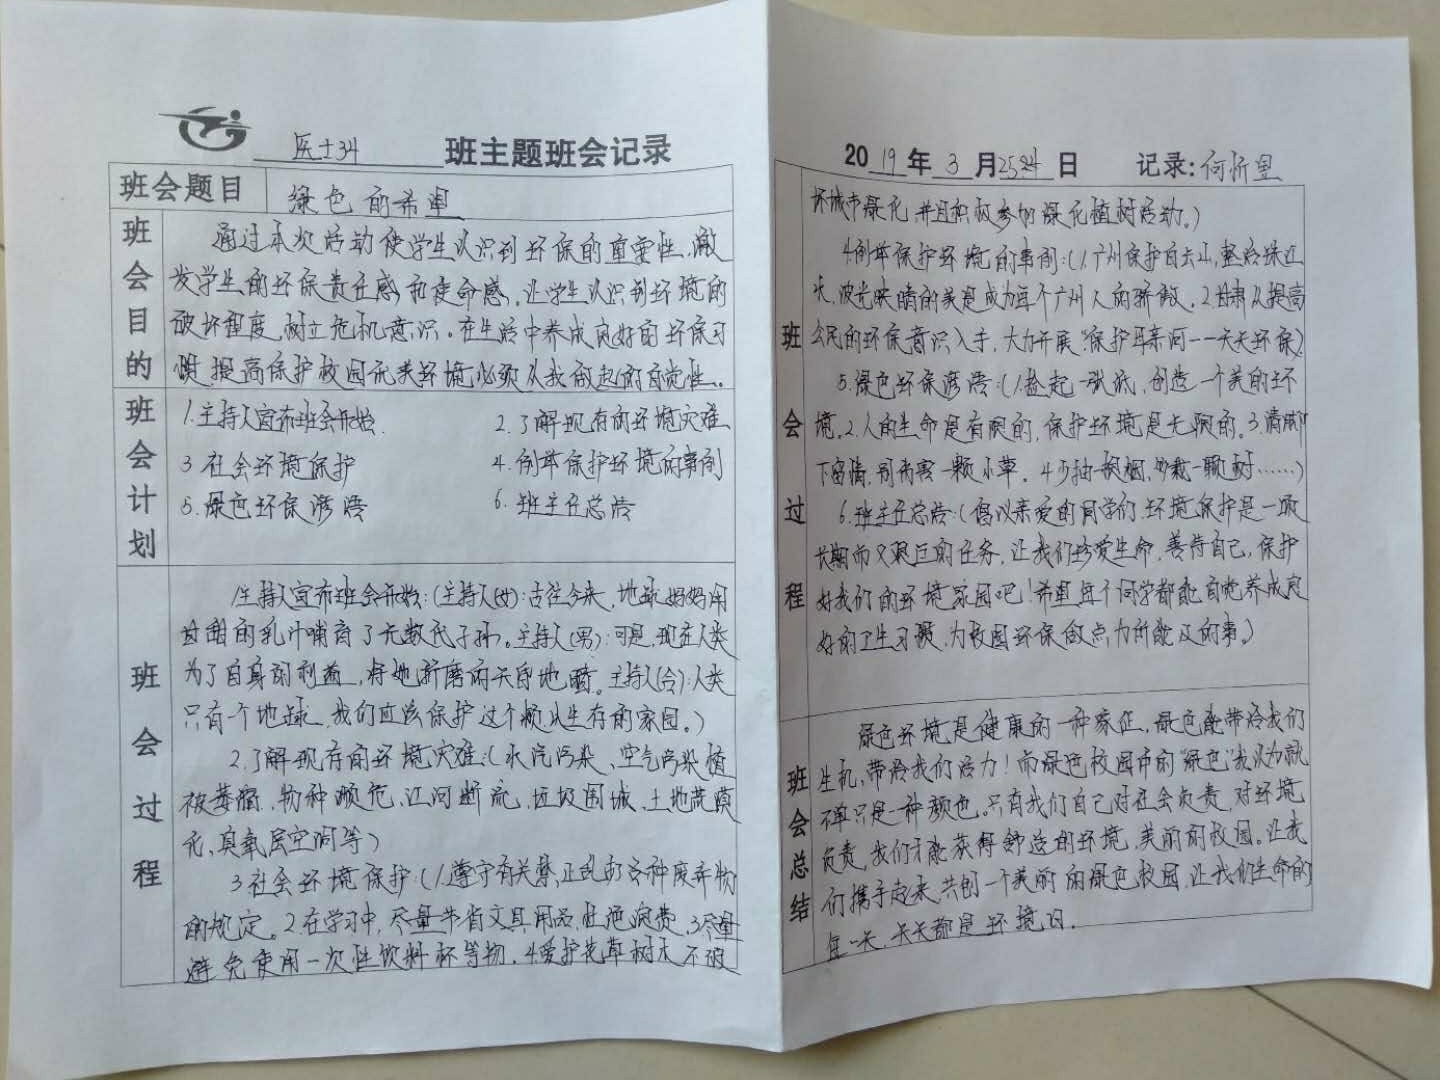 医士34 班主题班会记录
班会题目 绿色的希望
班会目的
通过本次活动使学生认识到环保的重要性,激
发学生的环保责任感和使命感,让学生认识到环境的
破坏程度,树立危机意识。在生活中养成良好的环保习
惯,提高保护校园和美环境必须从我做起的自觉性。
班会计划
1.主持人宣布班会开始. 2.了解现有的环境灾难
3.社会环境保护 4.例举保护环境的事例
5.绿色环保谚语 6.班主任总结
班会过程
1.主持人宣布班会开始:(主持人(女):古往今来,地球妈妈用
甘甜的乳汁哺育了无数代子孙。主持人(男):可是,现在人类
为了自身的利益,将她折磨的天昏地暗。主持人(合):人类
只有一个地球,我们应该保护这个赖以生存的家园。)
2.了解现有的环境灾难:(水污染、空气污染、植
被萎缩、物种濒危、江河断流、垃圾围城、土地荒漠
化、臭氧层空洞等)
3.社会环境保护:(1.遵守有关禁止乱扔各种废弃物
的规定。2.在学习中,尽量节省文具用品,杜绝浪费,3.尽量
避免使用一次性饮料杯等物,4.爱护花草树木,不破
2019年3月25日 记录:何忻
班会过程
坏城市绿化,并且积极参加绿化植树活动。)
4.例举保护环境的事例:(1.广州保护白云山,整治珠江
水,波光映晴的美景成为每个广州人的骄傲。2.甘肃从提高
公民的环保意识入手,大力开展"保护母亲河——天天环保)
5.绿色环保谚语:(1.捡起一张纸,创造一个美的环
境。2.人的生命是有限的,保护环境是无限的。3.请脚
下留情,别伤害一颗小草。4.少抽一根烟,多栽一颗树……)
6.班主任总结:(倡议亲爱的同学们,环境保护是一项
长期而又艰巨的任务,让我们珍爱生命,善待自己,保护
好我们的环境家园吧!希望每个同学都能自觉养成良
好的卫生习惯,为校园环保做点力所能及的事。)
班会总结
绿色环境是健康的一种象征,绿色能带给我们
生机,带给我们活力!而绿色校园中的"绿色"我认为就
不单只是一种颜色。只有我们自己对社会负责,对环境
负责,我们才能获得舒适的环境,美丽的校园。让我
们携手起来,共创一个美丽的绿色校园,让我们生命的
每一天,天天都是环境日.